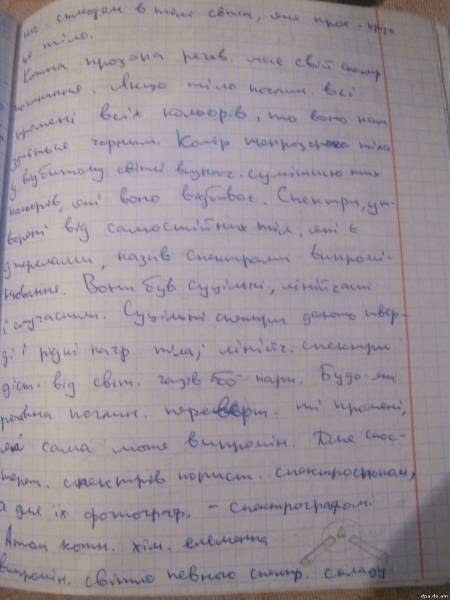 спектром в тілі світла, яке прос. крізь
це тіло.
Кожна прозора речов. має свій спектр
поглинання. Якщо тіло поглин. всі
промені всіх кольорів, то воно нам
здається чорним. Колір непрозорого тіла
у відбитому світлі визнач. сумішшю тих
кольорів, які воно відбиває. Спектри, ут-
ворені від самостійних тіл, які є
джерелами, назив спектрами випромі-
нювання. Вони був суцільні, лінійчасті
і смугастими. Суцільні спектри дають твер-
ді і рідкі нагр. тіла; лінійч. спектри
діст. від світ. газів або пари. Будь-яка
речовина поглин. перев. ті промені,
які сама може випромін. Для спос-
терег. спектрів корист. спектроскопом,
а для їх фотограф. - спектрографом.
Атом кожн. хім. елемента
випромін. світло певного спектр. складу
dpa.do.am